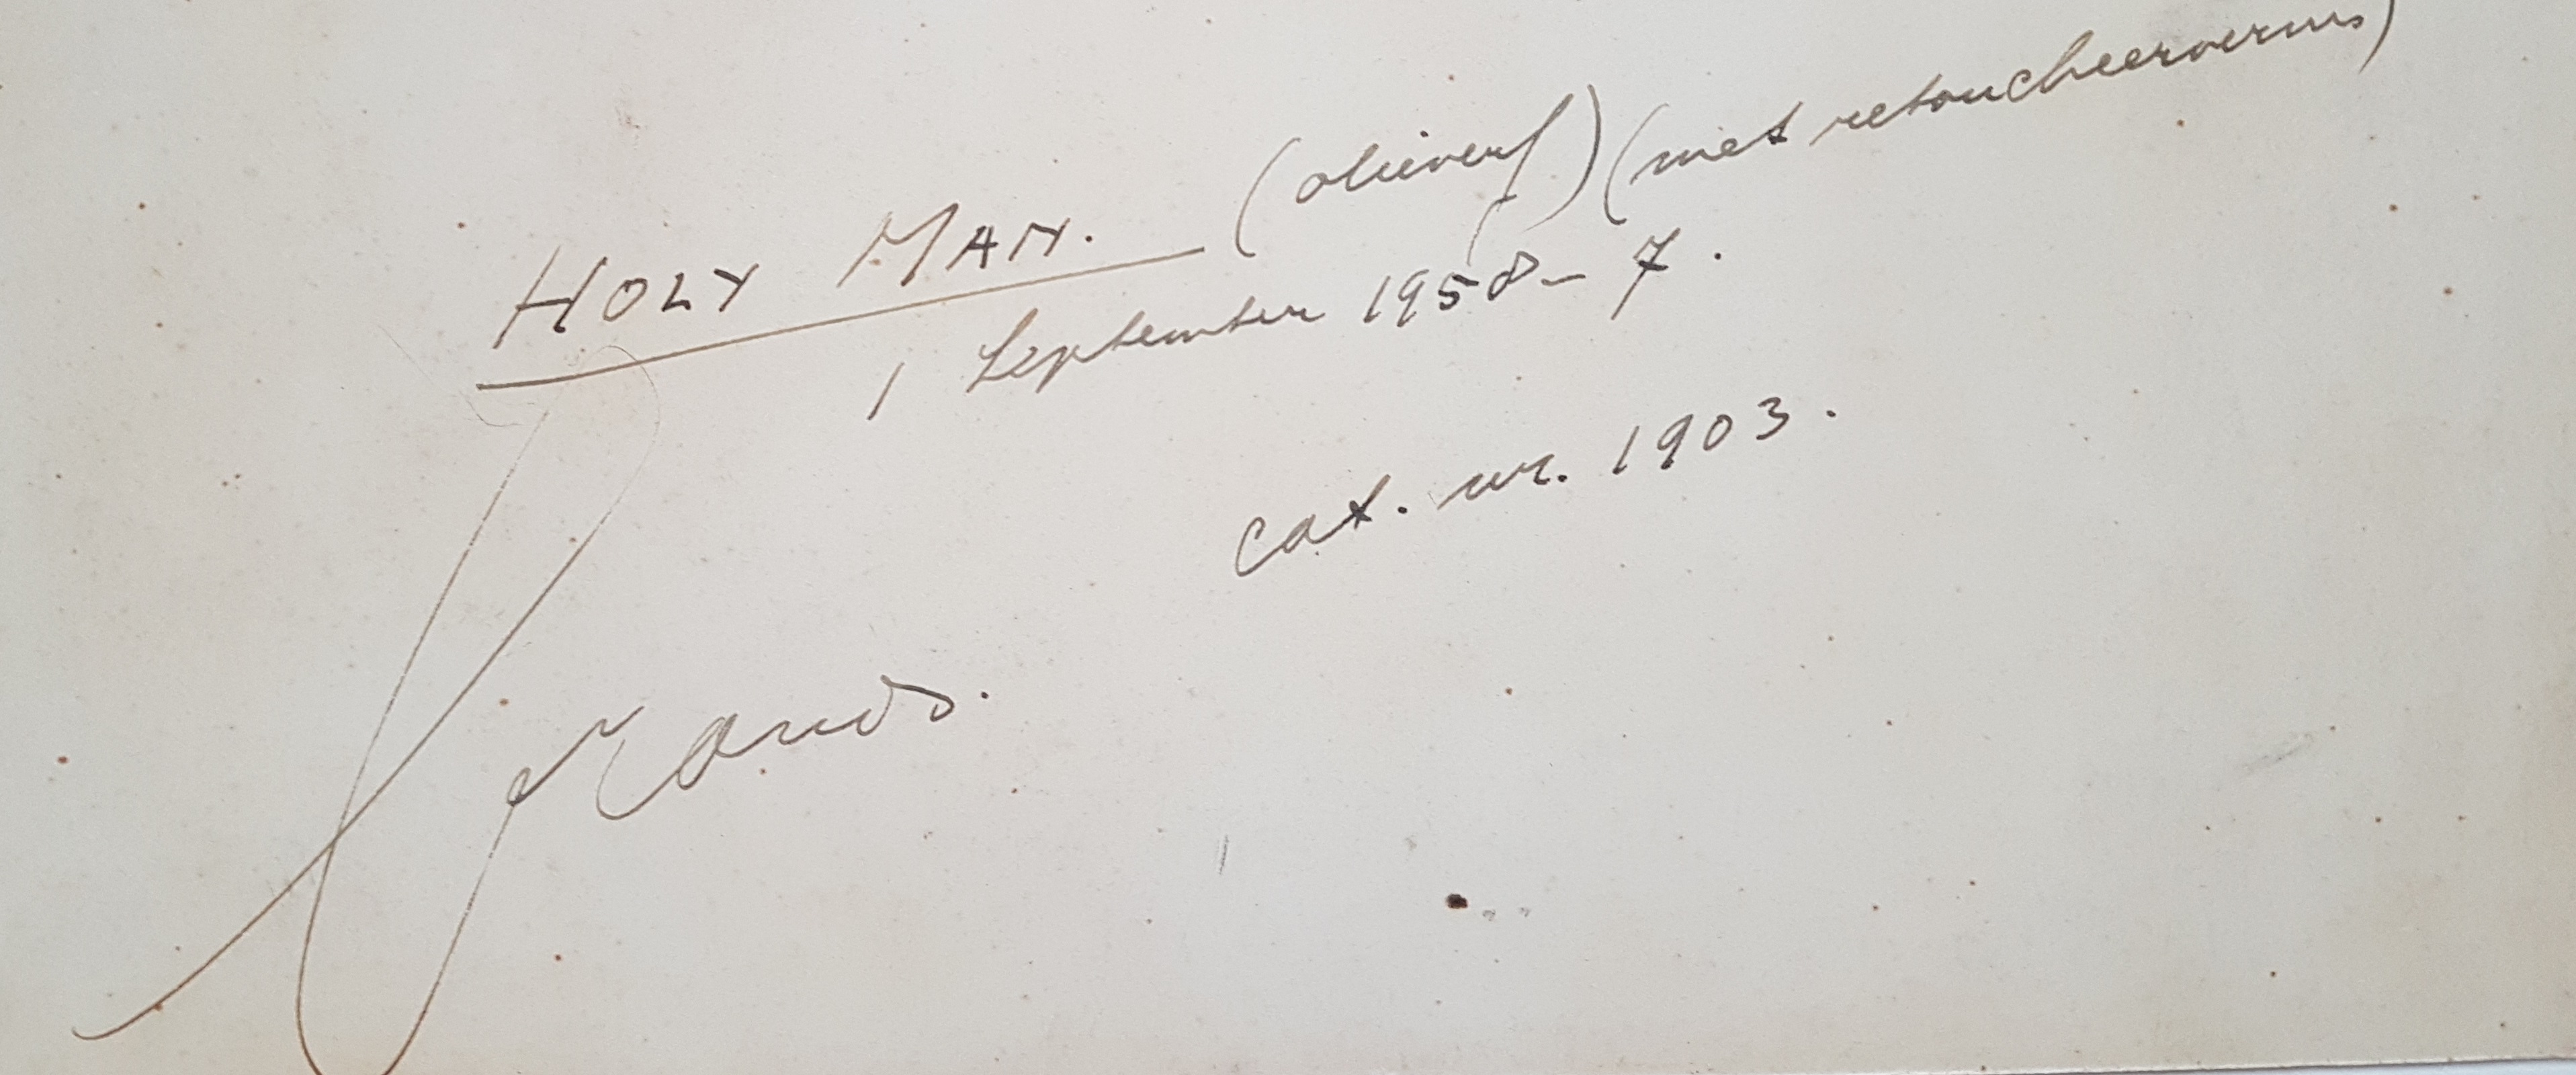 HOLY MAN. (olieverf) (met retoucheervernis)
1 September 1958 - 7.
cat. nr. 1903.